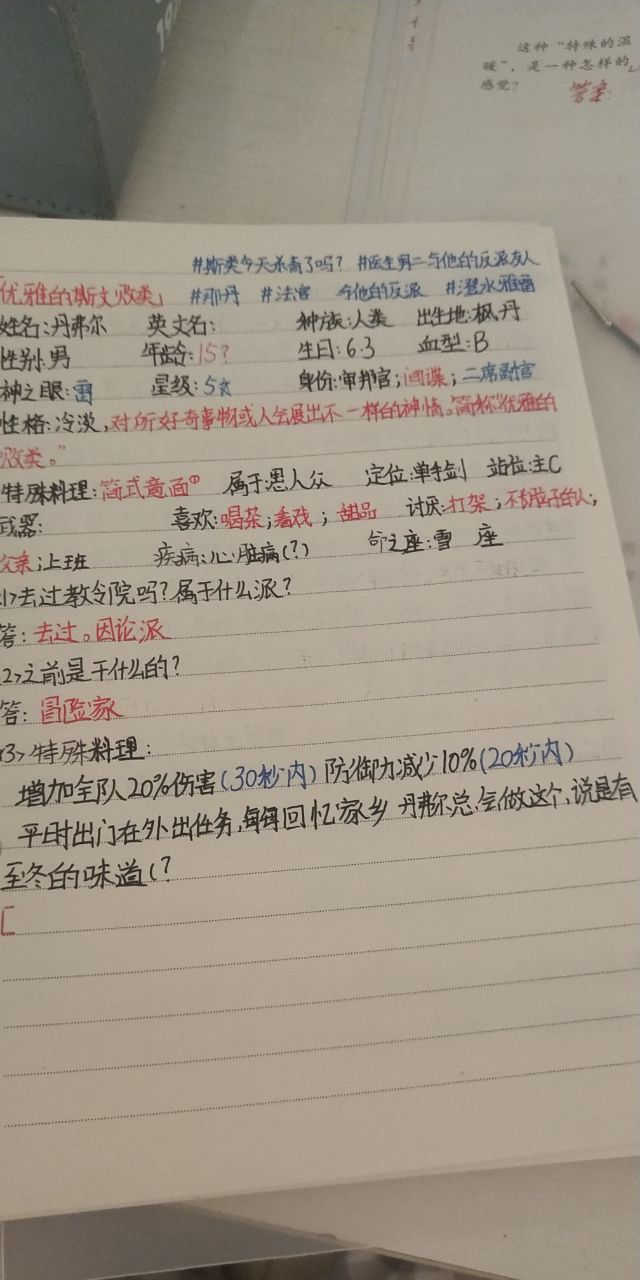 这种“特殊的温
暖”,是一种怎样的
感觉?
答案:
#斯类今天杀青了吗? #医生男二与他的反派友人
「优雅的斯文败类」 #那丹 #法官 与他的反派 #潜水雅酱
姓名:丹弗尔 英文名: 种族:人类 出生地:枫丹
性别:男 年龄:15? 生日:6.3 血型:B
神之眼:雷 星级:5☆ 身份:审判官;间谍;二席副官
性格:冷淡,对所好奇事物或人会展出不一样的神情。简称“优雅的
败类。”
特殊料理:简式意面① 属于:愚人众 定位:单手剑 站位:主C
武器: 喜欢:喝茶;看戏;甜品 讨厌:打架;不动脑子的人;
;上班 疾病:心脏病(?) 命之座:雪 座
<1>去过教令院吗?属于什么派?
答:去过。因论派
<2>之前是干什么的?
答:冒险家
<3>特殊料理:
增加全队20%伤害(30秒内)防御力减少10%(20秒内)
平时出门在外出任务,每每回忆家乡 丹弗尔总会做这个,说是有
至冬的味道(?
[